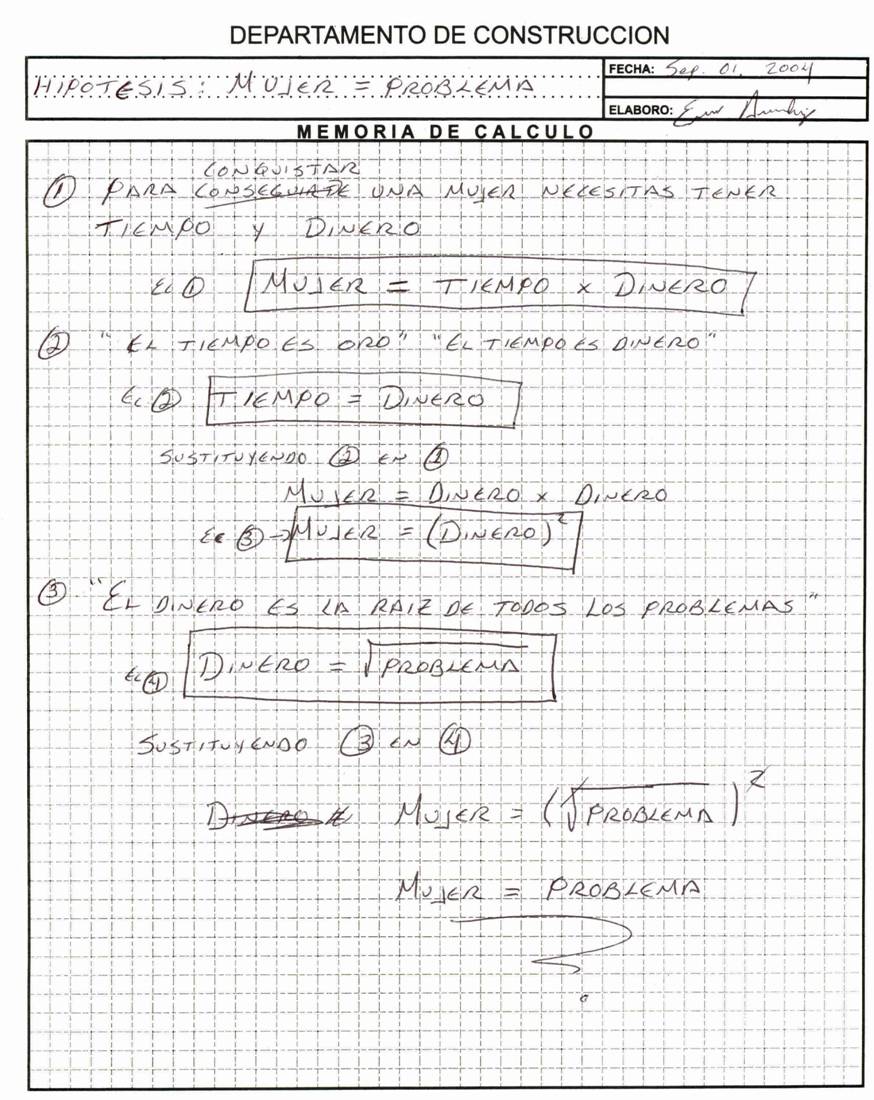 DEPARTAMENTO DE CONSTRUCCION
HIPOTESIS: MUJER = PROBLEMA
FECHA: Sep. 01. 2004
ELABORO:
MEMORIA DE CALCULO
CONQUISTAR
① PARA CONSEGUIRTE UNA MUJER NECESITAS TENER
TIEMPO Y DINERO
EC ① MUJER = TIEMPO x DINERO
② "EL TIEMPO ES ORO" "EL TIEMPO ES DINERO"
EC ② TIEMPO = DINERO
SUSTITUYENDO ② EN ①
MUJER = DINERO x DINERO
EC ③ → MUJER = (DINERO)²
③ "EL DINERO ES LA RAIZ DE TODOS LOS PROBLEMAS"
EC ④ DINERO = √PROBLEMA
SUSTITUYENDO ③ EN ④
DINERO MUJER = (√PROBLEMA)²
MUJER = PROBLEMA